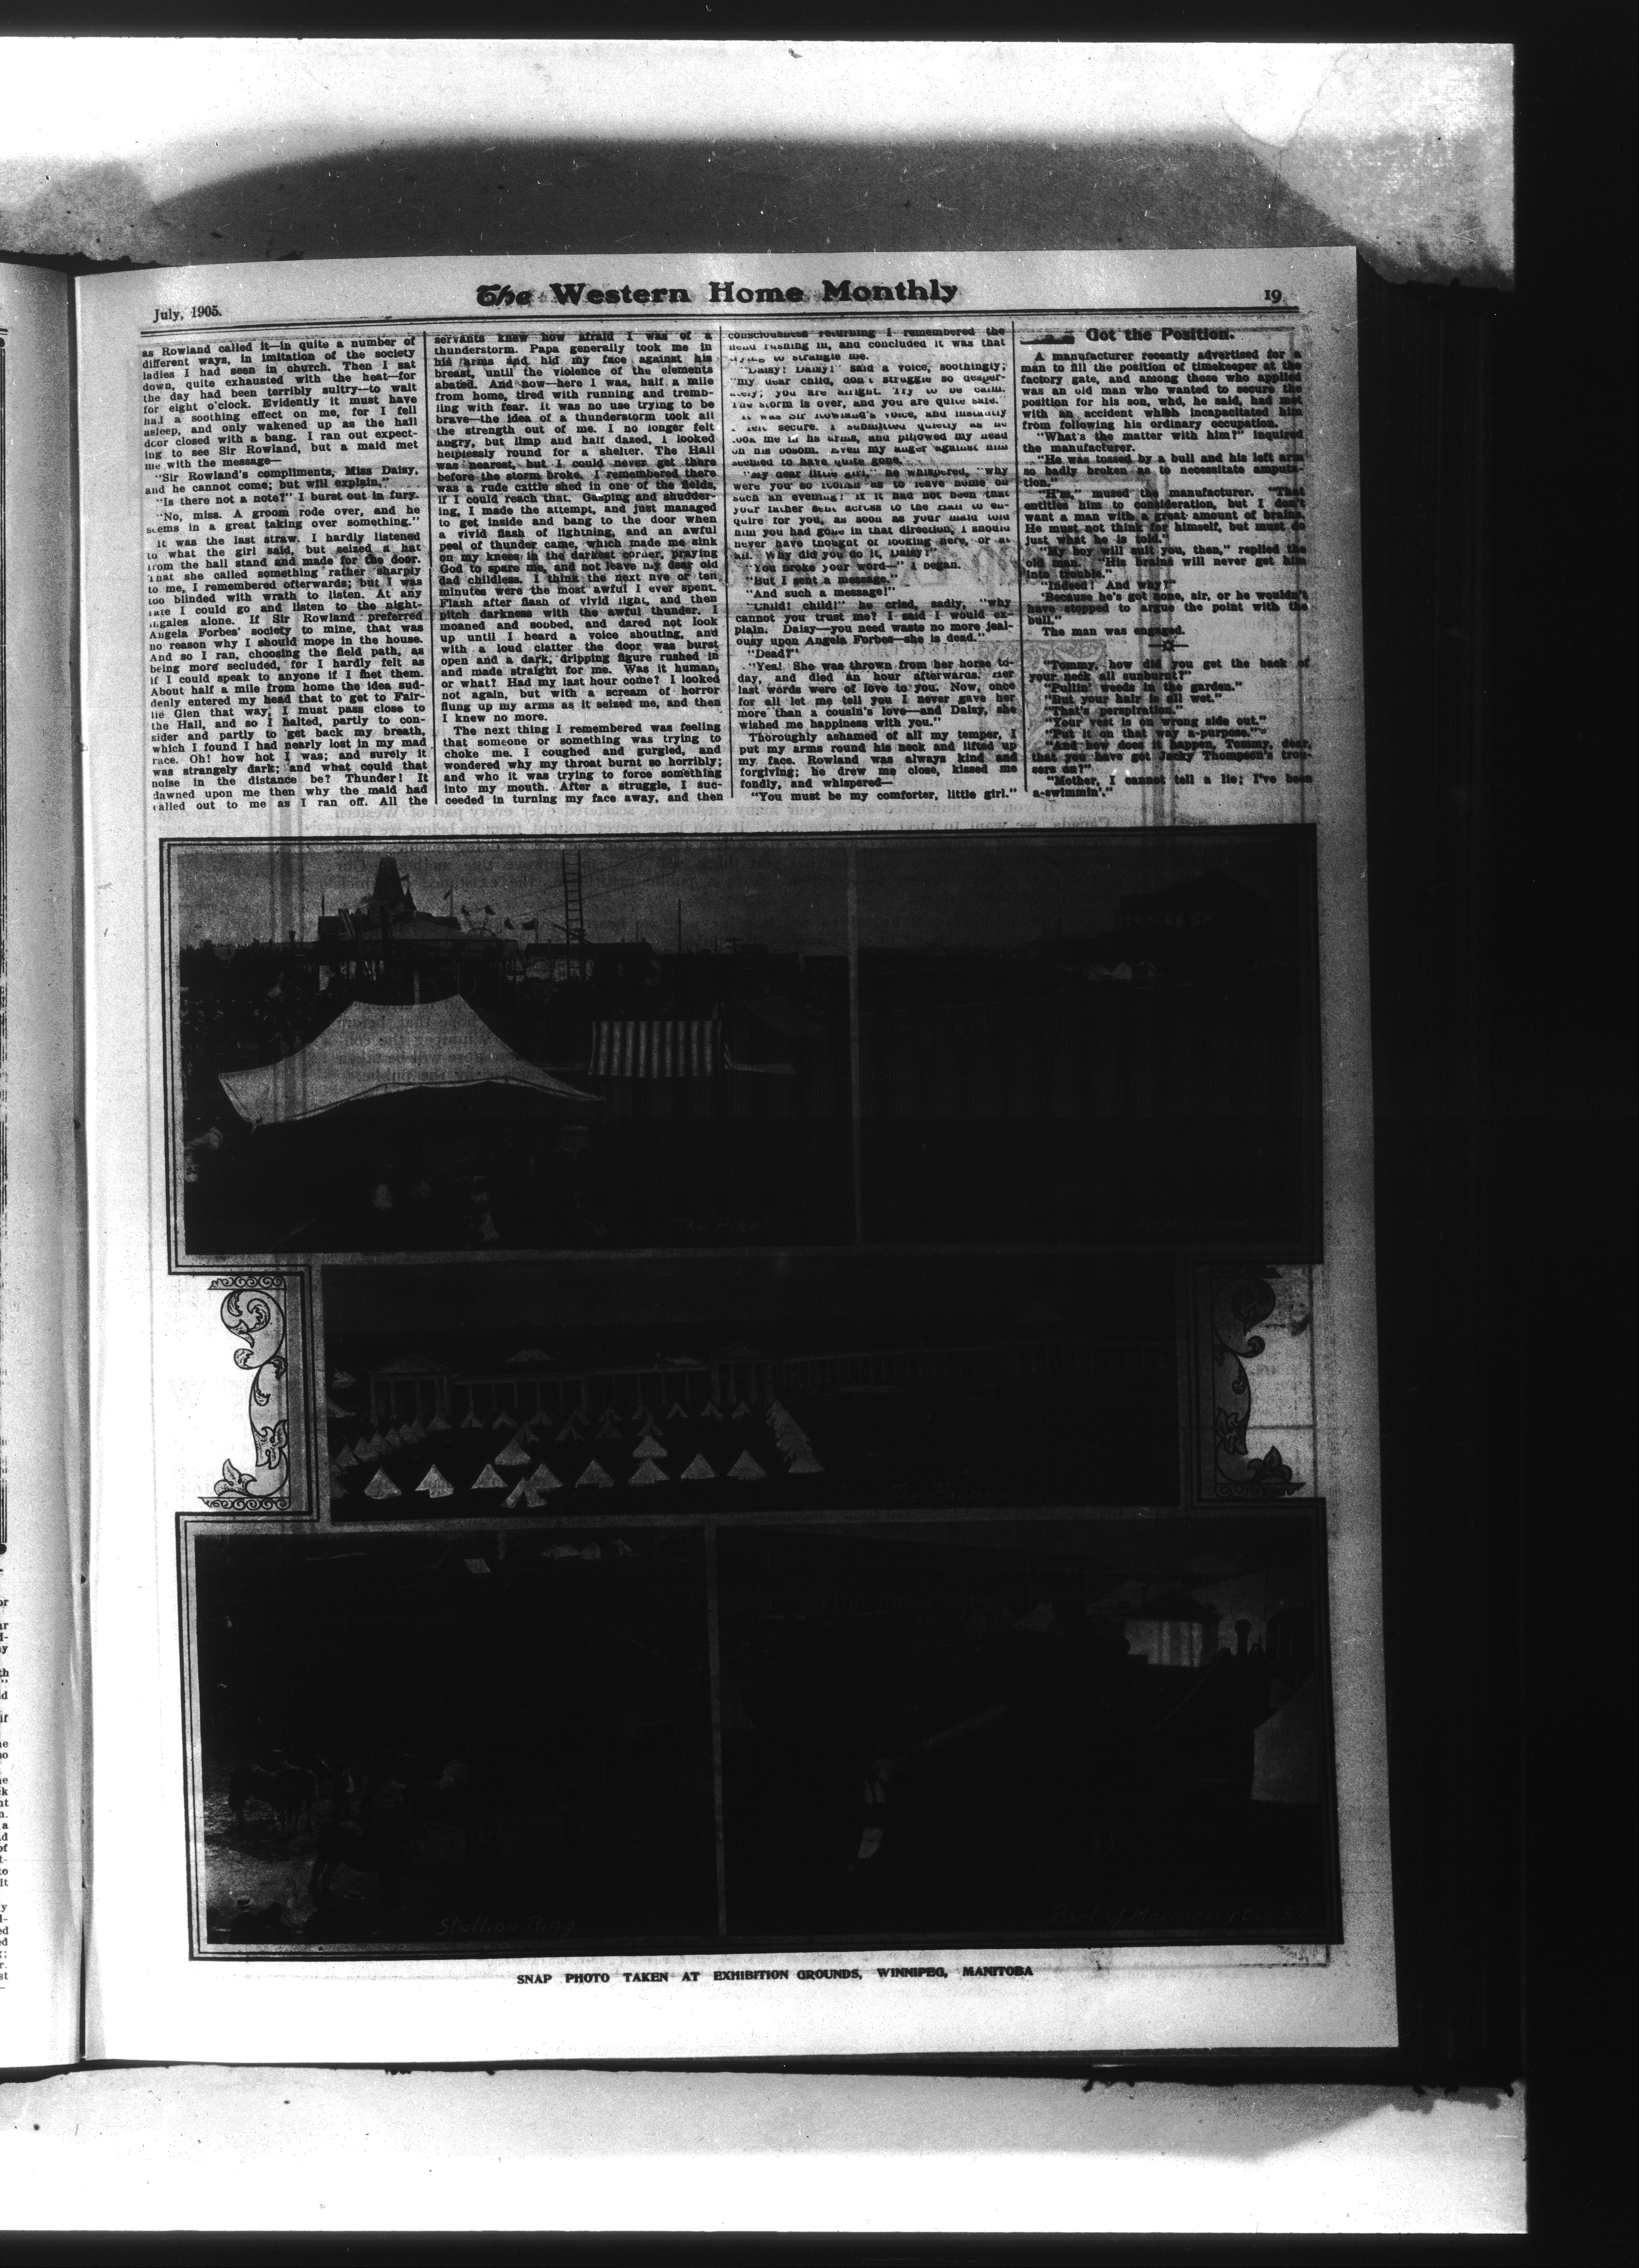 July, 1905.
The Western Home Monthly
19
as Rowland called it—in quite a number of
different ways, in imitation of the society
ladies I had seen in church. Then I sat
down, quite exhausted with the heat—for
the day had been terribly sultry—to wait
for eight o'clock. Evidently it must have
had a soothing effect on me, for I fell
asleep, and only wakened up as the hall
door closed with a bang. I ran out expect-
ing to see Sir Rowland, but a maid met
me with the message—
"Sir Rowland's compliments, Miss Daisy,
and he cannot come; but will explain."
"Is there not a note?" I burst out in fury.
"No, miss. A groom rode over, and he
seems in a great taking over something."
It was the last straw. I hardly listened
to what the girl said, but seized a hat
from the hall stand and made for the door.
That she called something rather sharply
to me, I remembered ofterwards; but I was
too blinded with wrath to listen. At any
rate I could go and listen to the night-
ingales alone. If Sir Rowland preferred
Angela Forbes' society to mine, that was
no reason why I should mope in the house.
And so I ran, choosing the field path, as
being more secluded, for I hardly felt as
if I could speak to anyone if I met them.
About half a mile from home the idea sud-
denly entered my head that to get to Fair-
lie Glen that way, I must pass close to
the Hall, and so I halted, partly to con-
sider and partly to get back my breath,
which I found I had nearly lost in my mad
race. Oh! how hot I was; and surely it
was strangely dark; and what could that
noise in the distance be? Thunder! It
dawned upon me then why the maid had
called out to me as I ran off. All the
servants knew how afraid I was of a
thunderstorm. Papa generally took me in
his arms and hid my face against his
breast, until the violence of the elements
abated. And now—here I was, half a mile
from home, tired with running and tremb-
ling with fear. It was no use trying to be
brave—the idea of a thunderstorm took all
the strength out of me. I no longer felt
angry, but limp and half dazed, I looked
helplessly round for a shelter. The Hall
was nearest, but I could never get there
before the storm broke. I remembered there
was a rude cattle shed in one of the fields,
if I could reach that. Gasping and shudder-
ing, I made the attempt, and just managed
to get inside and bang to the door when
a vivid flash of lightning, and an awful
peel of thunder came, which made me sink
on my knees in the darkest corner, praying
God to spare me, and not leave my dear old
dad childless. I think the next five or ten
minutes were the most awful I ever spent.
Flash after flash of vivid light, and then
pitch darkness with the awful thunder. I
moaned and soobed, and dared not look
up until I heard a voice shouting, and
with a loud clatter the door was burst
open and a dark, dripping figure rushed in
and made straight for me. Was it human,
or what? Had my last hour come? I looked
not again, but with a scream of horror
flung up my arms as it seized me, and then
I knew no more.
The next thing I remembered was feeling
that someone or something was trying to
choke me. I coughed and gurgled, and
wondered why my throat burnt so horribly;
and who it was trying to force something
into my mouth. After a struggle, I suc-
ceeded in turning my face away, and then
consciousness returning I remembered the
fiend rushing in, and concluded it was that
trying to strangle me.
"Daisy! Daisy!" said a voice, soothingly;
"my dear child, don't struggle so desper-
ately; you are alright. Try to be calm.
The storm is over, and you are quite safe."
It was Sir Rowland's voice, and instantly
I felt secure. I submitted quietly as he
took me in his arms, and pillowed my head
on his bosom. Even my anger against him
seemed to have quite gone.
"My dear little girl," he whispered, "why
were you so foolish as to leave home on
such an evening! If it had not been that
your father sent across to the Hall to en-
quire for you, as soon as your maid told
him you had gone in that direction, I should
never have thought of looking here, or at
all. Why did you do it, Daisy?"
"You broke your word—" I began.
"But I sent a message."
"And such a message!"
"Child! child!" he cried, sadly, "why
cannot you trust me? I said I would ex-
plain. Daisy—you need waste no more jeal-
ousy upon Angela Forbes—she is dead."
"Dead?"
"Yes! She was thrown from her horse to-
day, and died an hour afterwards. Her
last words were of love to you. Now, once
for all let me tell you I never gave her
more than a cousin's love—and Daisy, she
wished me happiness with you."
Thoroughly ashamed of all my temper, I
put my arms round his neck and lifted up
my face. Rowland was always kind and
forgiving; he drew me close, kissed me
fondly, and whispered—
"You must be my comforter, little girl."
Got the Position.
A manufacturer recently advertised for a
man to fill the position of timekeeper at the
factory gate, and among those who applied
was an old man who wanted to secure the
position for his son, who, he said, had met
with an accident which incapacitated him
from following his ordinary occupation.
"What's the matter with him?" inquired
the manufacturer.
"He was tossed by a bull and his left arm
so badly broken as to necessitate amputa-
tion."
"H'm," mused the manufacturer. "That
entitles him to consideration, but I don't
want a man with a great amount of brains.
He must not think for himself, but must do
just what he is told."
"My boy will suit you, then," replied the
old man. "His brains will never get him
into trouble."
"Indeed! And why?"
"Because he's got none, sir, or he wouldn't
have stopped to argue the point with the
bull."
The man was engaged.
"Tommy, how did you get the back of
your neck all sunburnt?"
"Pullin' weeds in the garden."
"But your hair is all wet."
"That's perspiration."
"Your vest is on wrong side out."
"Put it on that way a-purpose."
"And how does it happen, Tommy, dear,
that you have got Jacky Thompson's trou-
sers on?"
"Mother, I cannot tell a lie; I've been
a-swimmin'."
The Pike
Facade
Stallion Ring
Part of Machinery Exhibit
SNAP PHOTO TAKEN AT EXHIBITION GROUNDS, WINNIPEG, MANITOBA